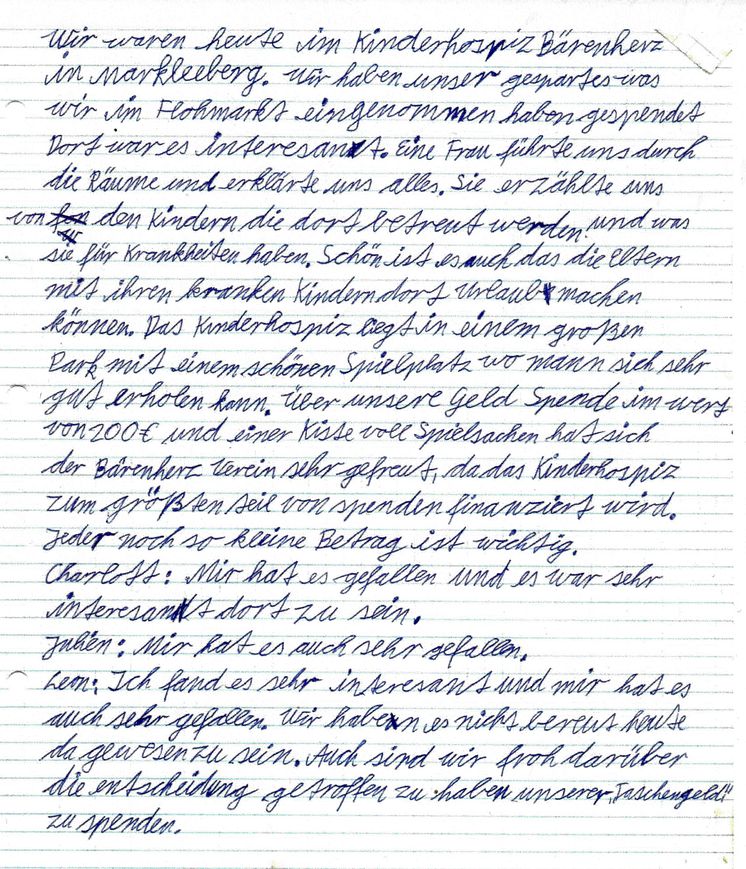 Wir waren heute im Kinderhospiz Bärenherz
in Markleeberg. Wir haben unser gespartes was
wir im Flohmarkt eingenommen haben gespendet
Dort war es interesant. Eine Frau führte uns durch
die Räume und erklärte uns alles. Sie erzählte uns
von den Kindern die dort betreut werden. und was
sie für Krankheiten haben. Schön ist es auch das die Eltern
mit ihren kranken Kindern dort Urlaub machen
können. Das Kinderhospiz liegt in einem großen
Park mit einem schönen Spielplatz wo mann sich sehr
gut erholen kann. Über unsere Geld Spende im wert
von 200€ und einer Kisse voll Spielsachen hat sich
der Bärenherz Verein sehr gefreut, da das Kinderhospiz
zum größten teil von spenden finanziert wird.
Jeder noch so kleine Betrag ist wichtig.
Charlott: Mir hat es gefallen und es war sehr
interesant dort zu sein.
Julien: Mir hat es auch sehr gefallen.
Leon: Ich fand es sehr interesant und mir hat es
auch sehr gefallen. Wir haben es nicht bereut heute
da gewesen zu sein. Auch sind wir froh darüber
die entscheidung getroffen zu haben unserer „Taschengeld"
zu spenden.